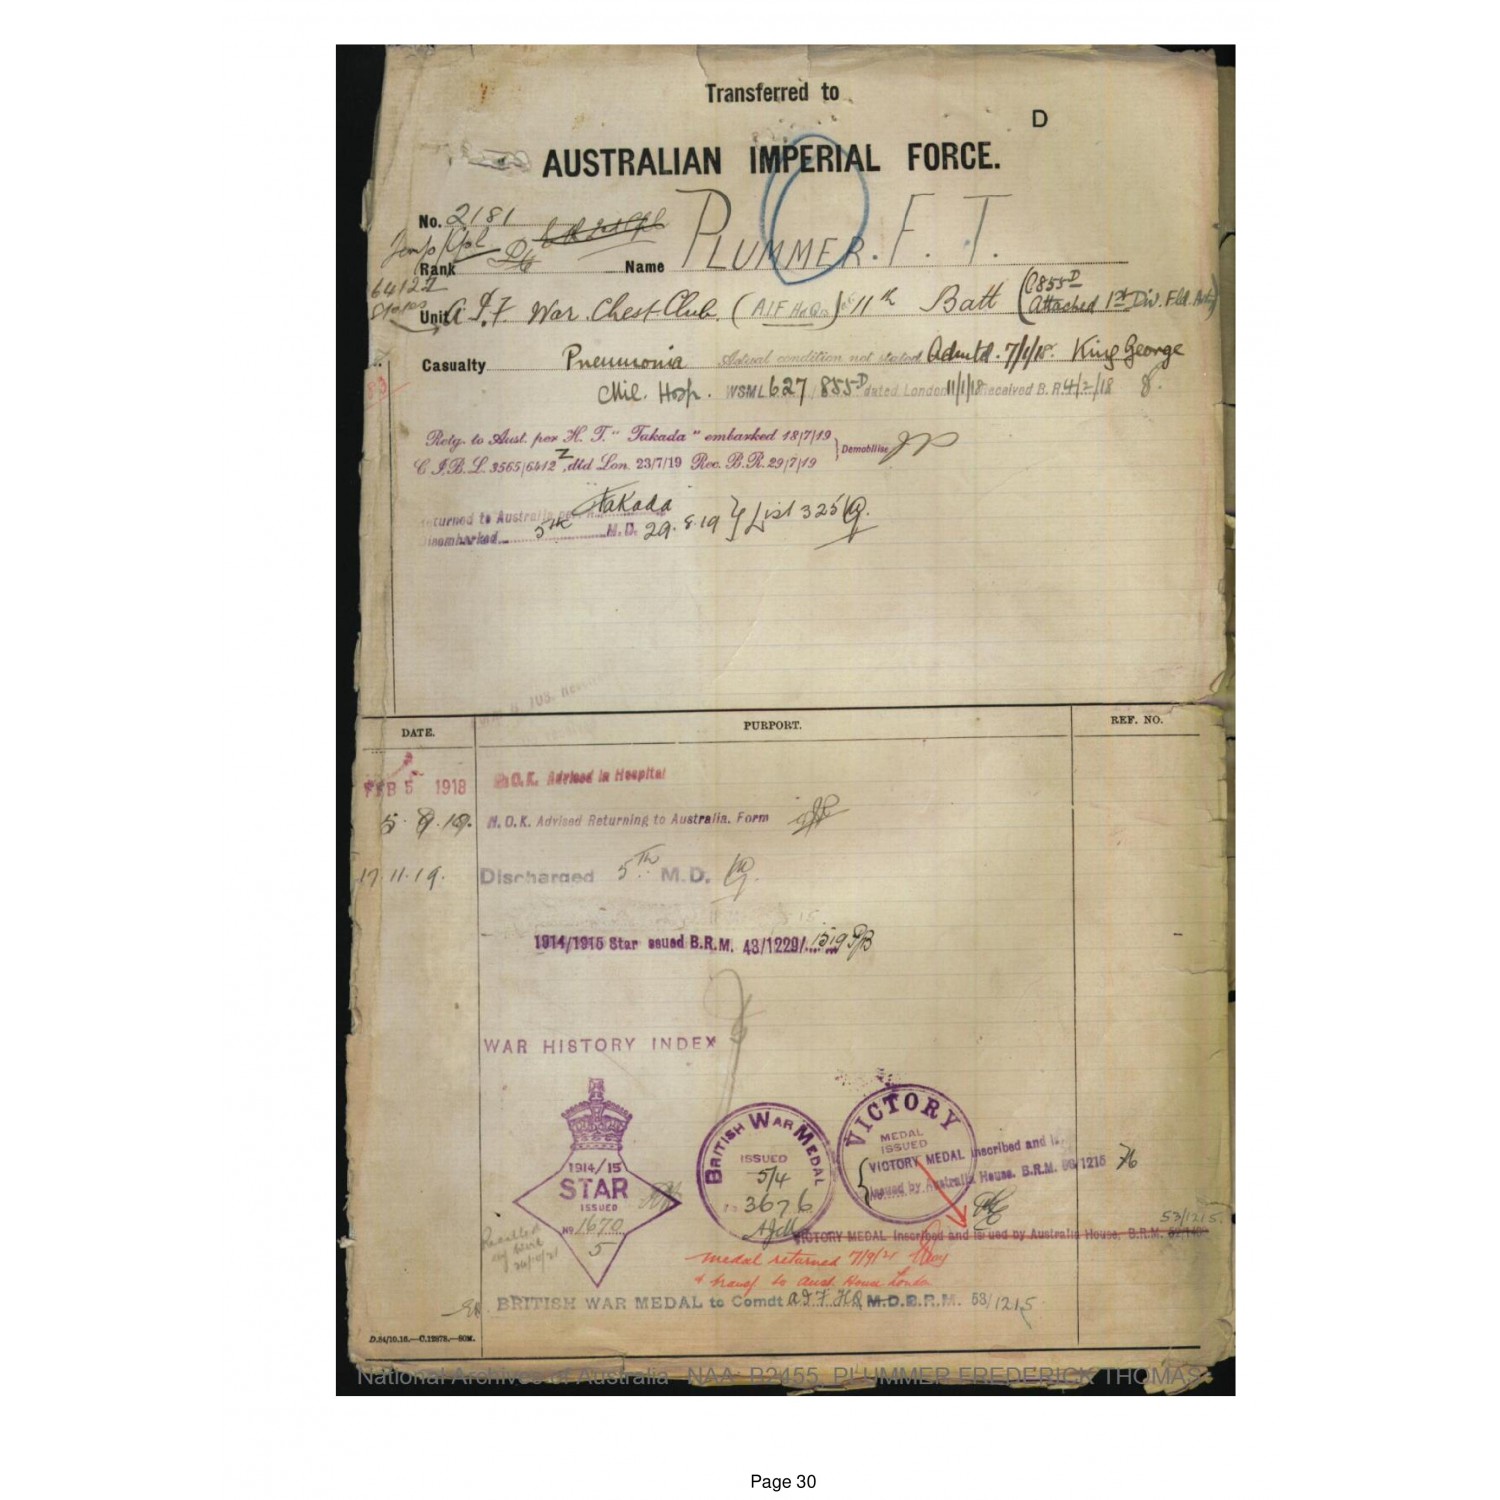 Transferred to
D
AUSTRALIAN IMPERIAL FORCE.
No. 2181
Temp/Cpl
Rank Name PLUMMER. F. T.
6412Z
Unit A.I.F. War Chest Club. (AIF HdQrs) 11th Batt (0855D Attached 1st Div. Fld. Arty)
Casualty Pneumonia Actual condition not stated Admtd. 7/1/18. King George
Mil. Hosp. WSML 627/855D dated London 11/1/18 Received B.R. 4/2/18
Retg. to Aust. per H. T. "Takada" embarked 18/7/19
C.I.B.L. 3565/6412Z, dtd Lon. 23/7/19 Rec. B.R. 29/7/19 Demobilise
Returned to Australia per Takada
Disembarked 5th M.D. 29.8.19 List 325
DATE. PURPORT. REF. NO.
FEB 5 1918 N.O.K. Advised in Hospital
5.9.19. N.O.K. Advised Returning to Australia. Form
17.11.19. Discharged 5TH M.D.
1914/1915 Star issued B.R.M. 43/1229/1519
WAR HISTORY INDEX
1914/15
STAR
ISSUED
No 1670
5
BRITISH WAR MEDAL
ISSUED
5/4
3676
VICTORY
MEDAL
ISSUED
VICTORY MEDAL inscribed and is
issued by Australia House. B.R.M. /1215
53/1215.
VICTORY MEDAL inscribed and issued by Australia House. B.R.M.
medal returned 7/9/21
& transf to Aust. House London
BRITISH WAR MEDAL to Comdt AIF HQ M.D.B.R.M. 53/1215
D.84/10.16.—C.12878.—50M.
National Archives of Australia NAA: B2455, PLUMMER FREDERICK THOMAS
Page 30